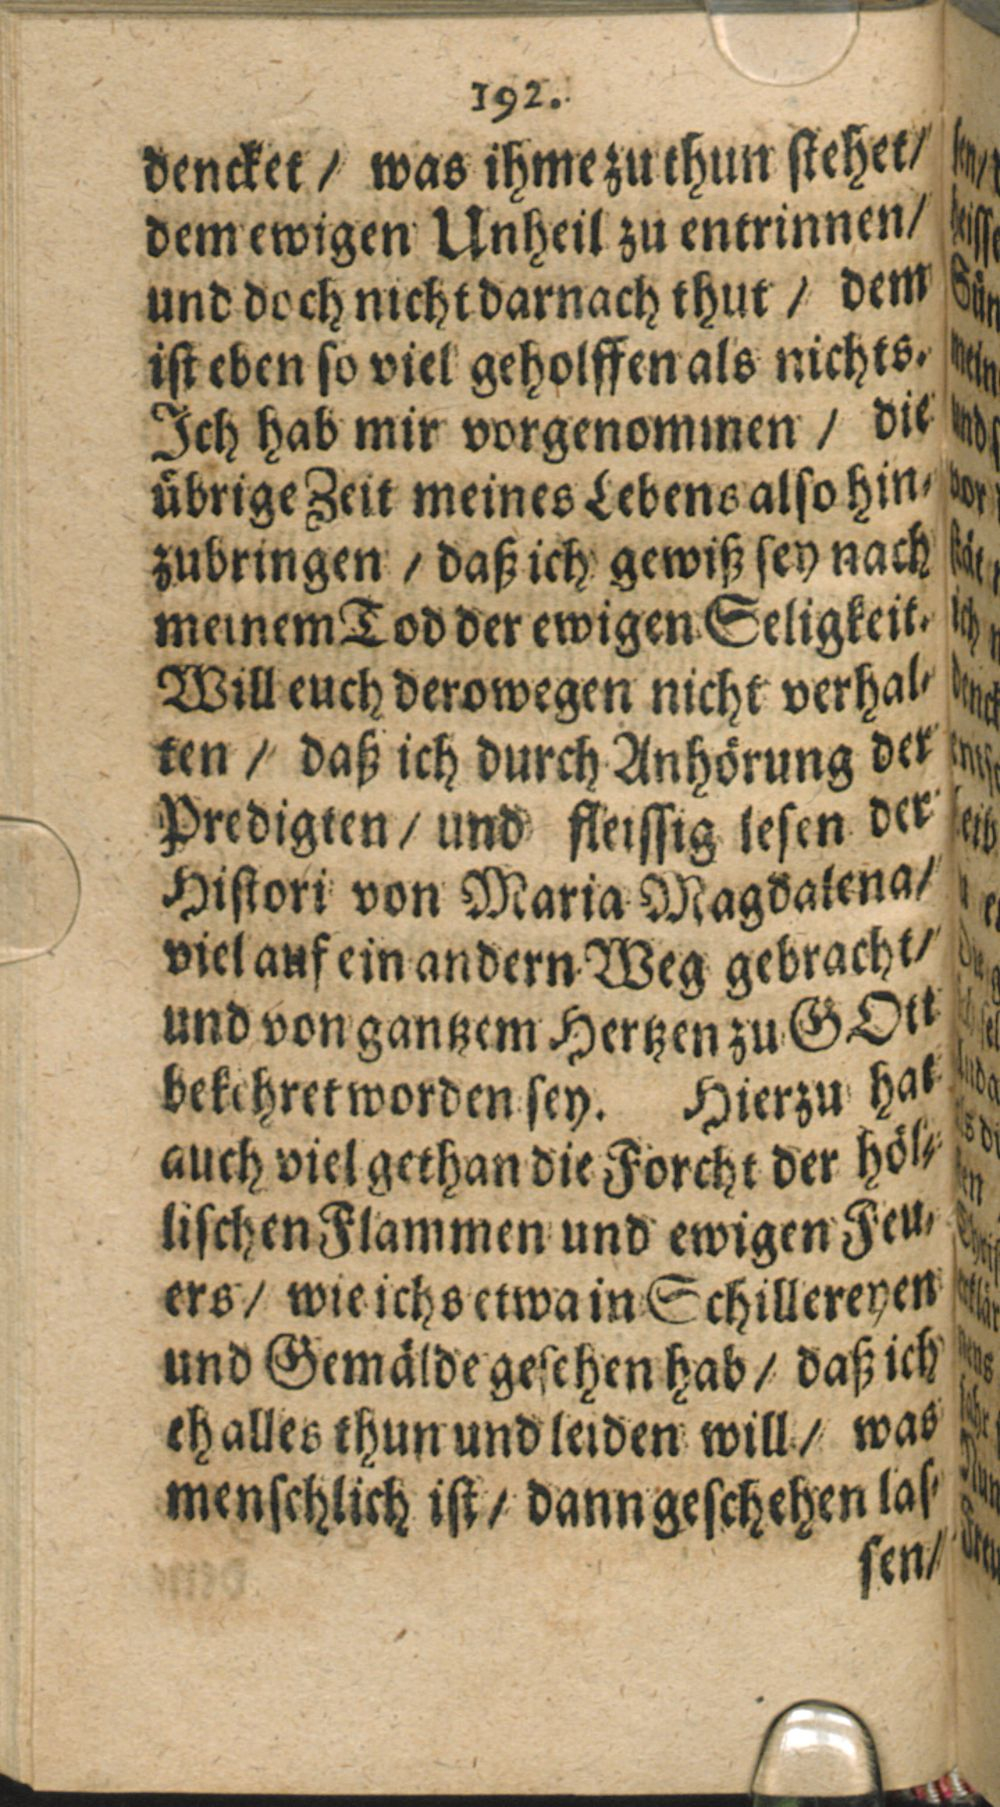 192.
dencket / was ihme zu thun stehet /
dem ewigen Unheil zu entrinnen /
und doch nicht darnach thut / dem
ist eben so viel geholffen als nichts.
Ich hab mir vorgenommen / die
übrige Zeit meines Lebens also hin-
zubringen / daß ich gewiß sey nach
meinem Tod der ewigen Seligkeit.
Will euch derowegen nicht verhal-
ten / daß ich durch Anhörung der
Predigten / und fleissig lesen der
Histori von Maria Magdalena /
viel auf ein andern Weg gebracht /
und von gantzem Hertzen zu GOtt
bekehret worden sey. Hierzu hat
auch viel gethan die Forcht der höl-
lischen Flammen und ewigen Feu-
ers / wie ichs etwa in Schillereyen
und Gemälde gesehen hab / daß ich
eh alles thun und leiden will / was
menschlich ist / dann geschehen las-
sen /